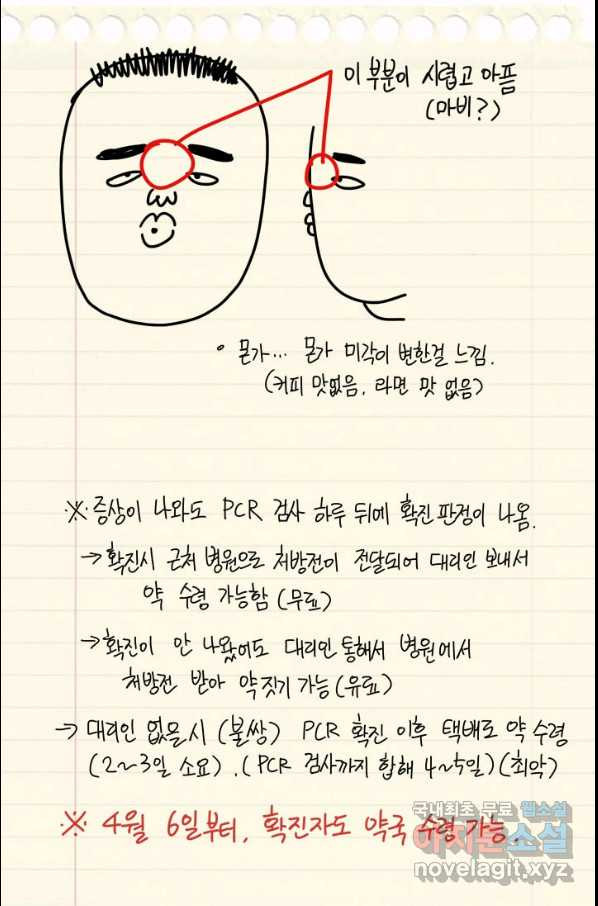 이 부분이 시렵고 아픔
(마비?)
• 몬가... 몬가 미각이 변한걸 느낌.
(커피 맛없음, 라면 맛 없음)
※ 증상이 나와도 PCR 검사 하루 뒤에 확진 판정이 나옴.
→ 확진시 근처 병원으로 처방전이 전달되어 대리인 보내서
약 수령 가능함 (무료)
→ 확진이 안 나왔어도 대리인 통해서 병원에서
처방전 받아 약 짓기 가능 (유료)
→ 대리인 없을 시 (불쌍) PCR 확진 이후 택배로 약 수령
(2~3일 소요). (PCR 검사까지 합해 4~5일) (최악)
※ 4월 6일부터, 확진자도 약국 수령 가능.
국내최초 무료 웹소설
아지툰소설
novelagit.xyz